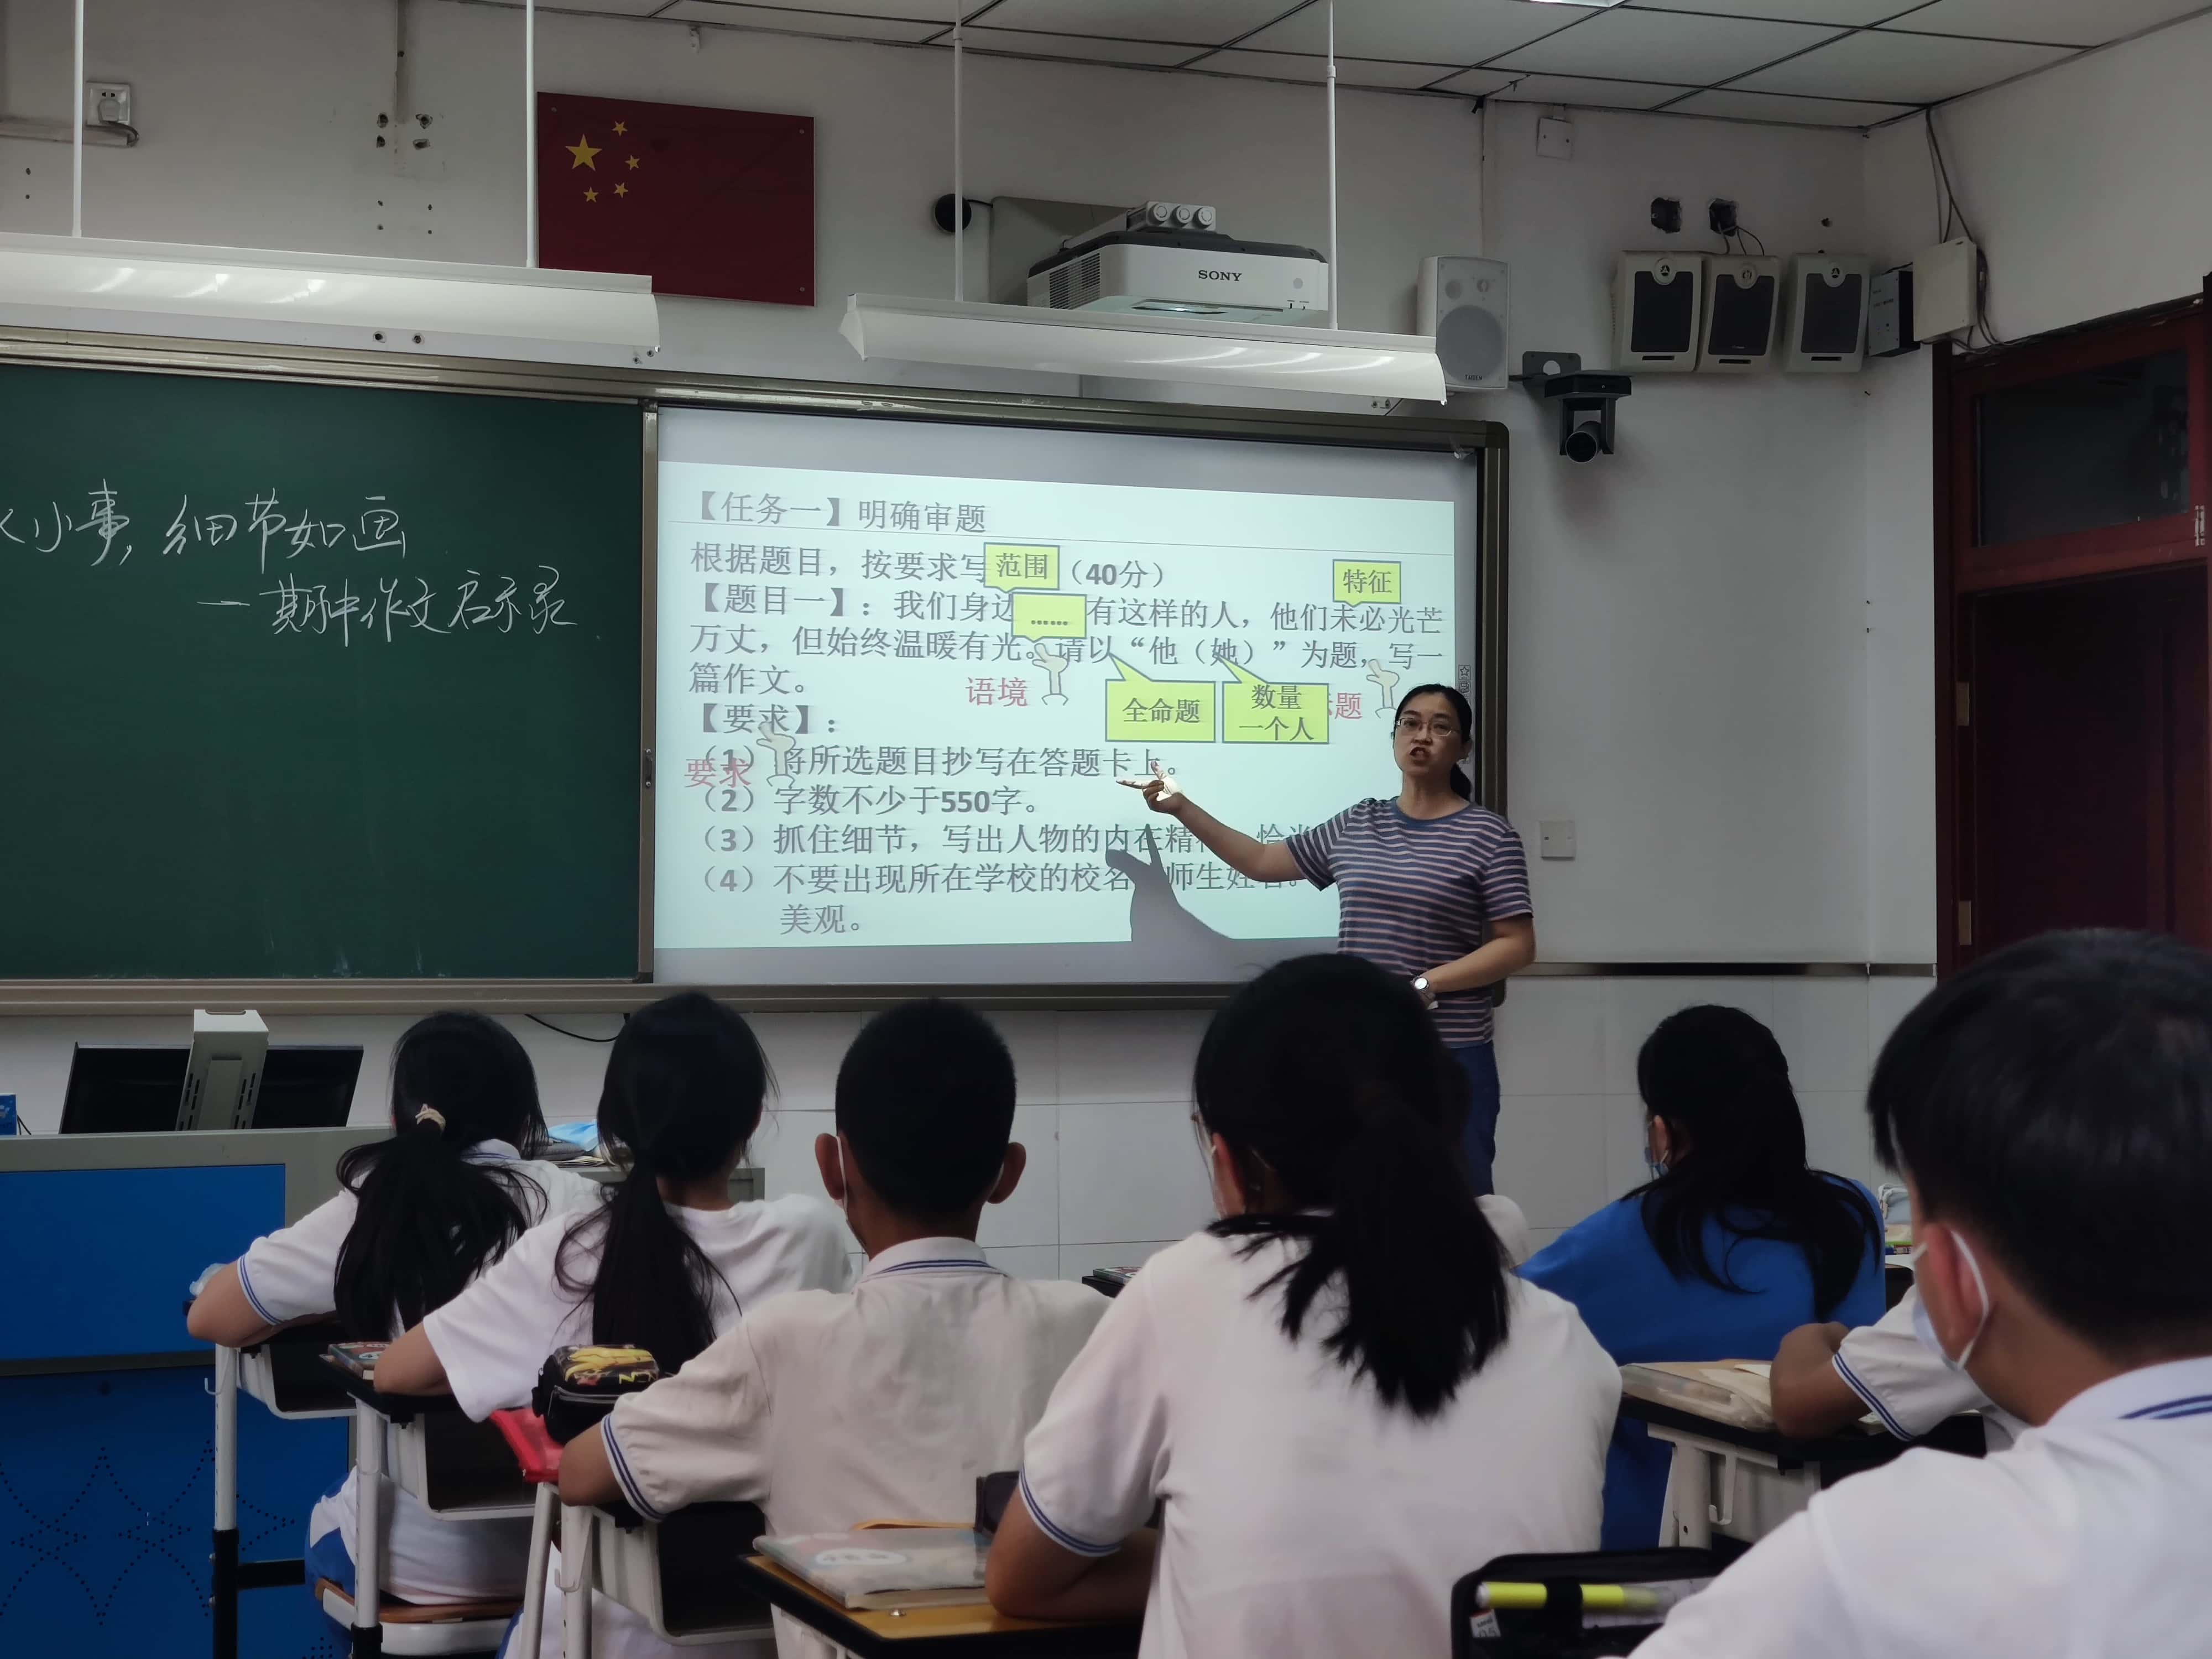 小事，细节如画
—期中作文启示录
SONY
【任务一】明确审题
根据题目，按要求写
范围
（40分）
特征
【题目一】：我们身边
……
有这样的人，他们未必光芒
万丈，但始终温暖有光。请以“他（她）”为题，写一
篇作文。
语境
全命题
数量
一个人
题
【要求】：
（1）将所选题目抄写在答题卡上。
要求
（2）字数不少于550字。
（3）抓住细节，写出人物的内在精
（4）不要出现所在学校的校名
师生姓名。
美观。